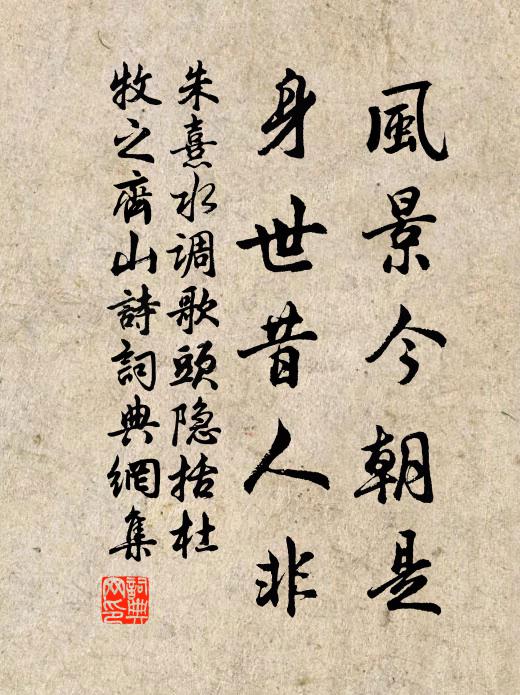 風景今朝是
身世昔人非
朱熹水调歌頭隐括杜
牧之齊山詩詞典網集
詞典
网印